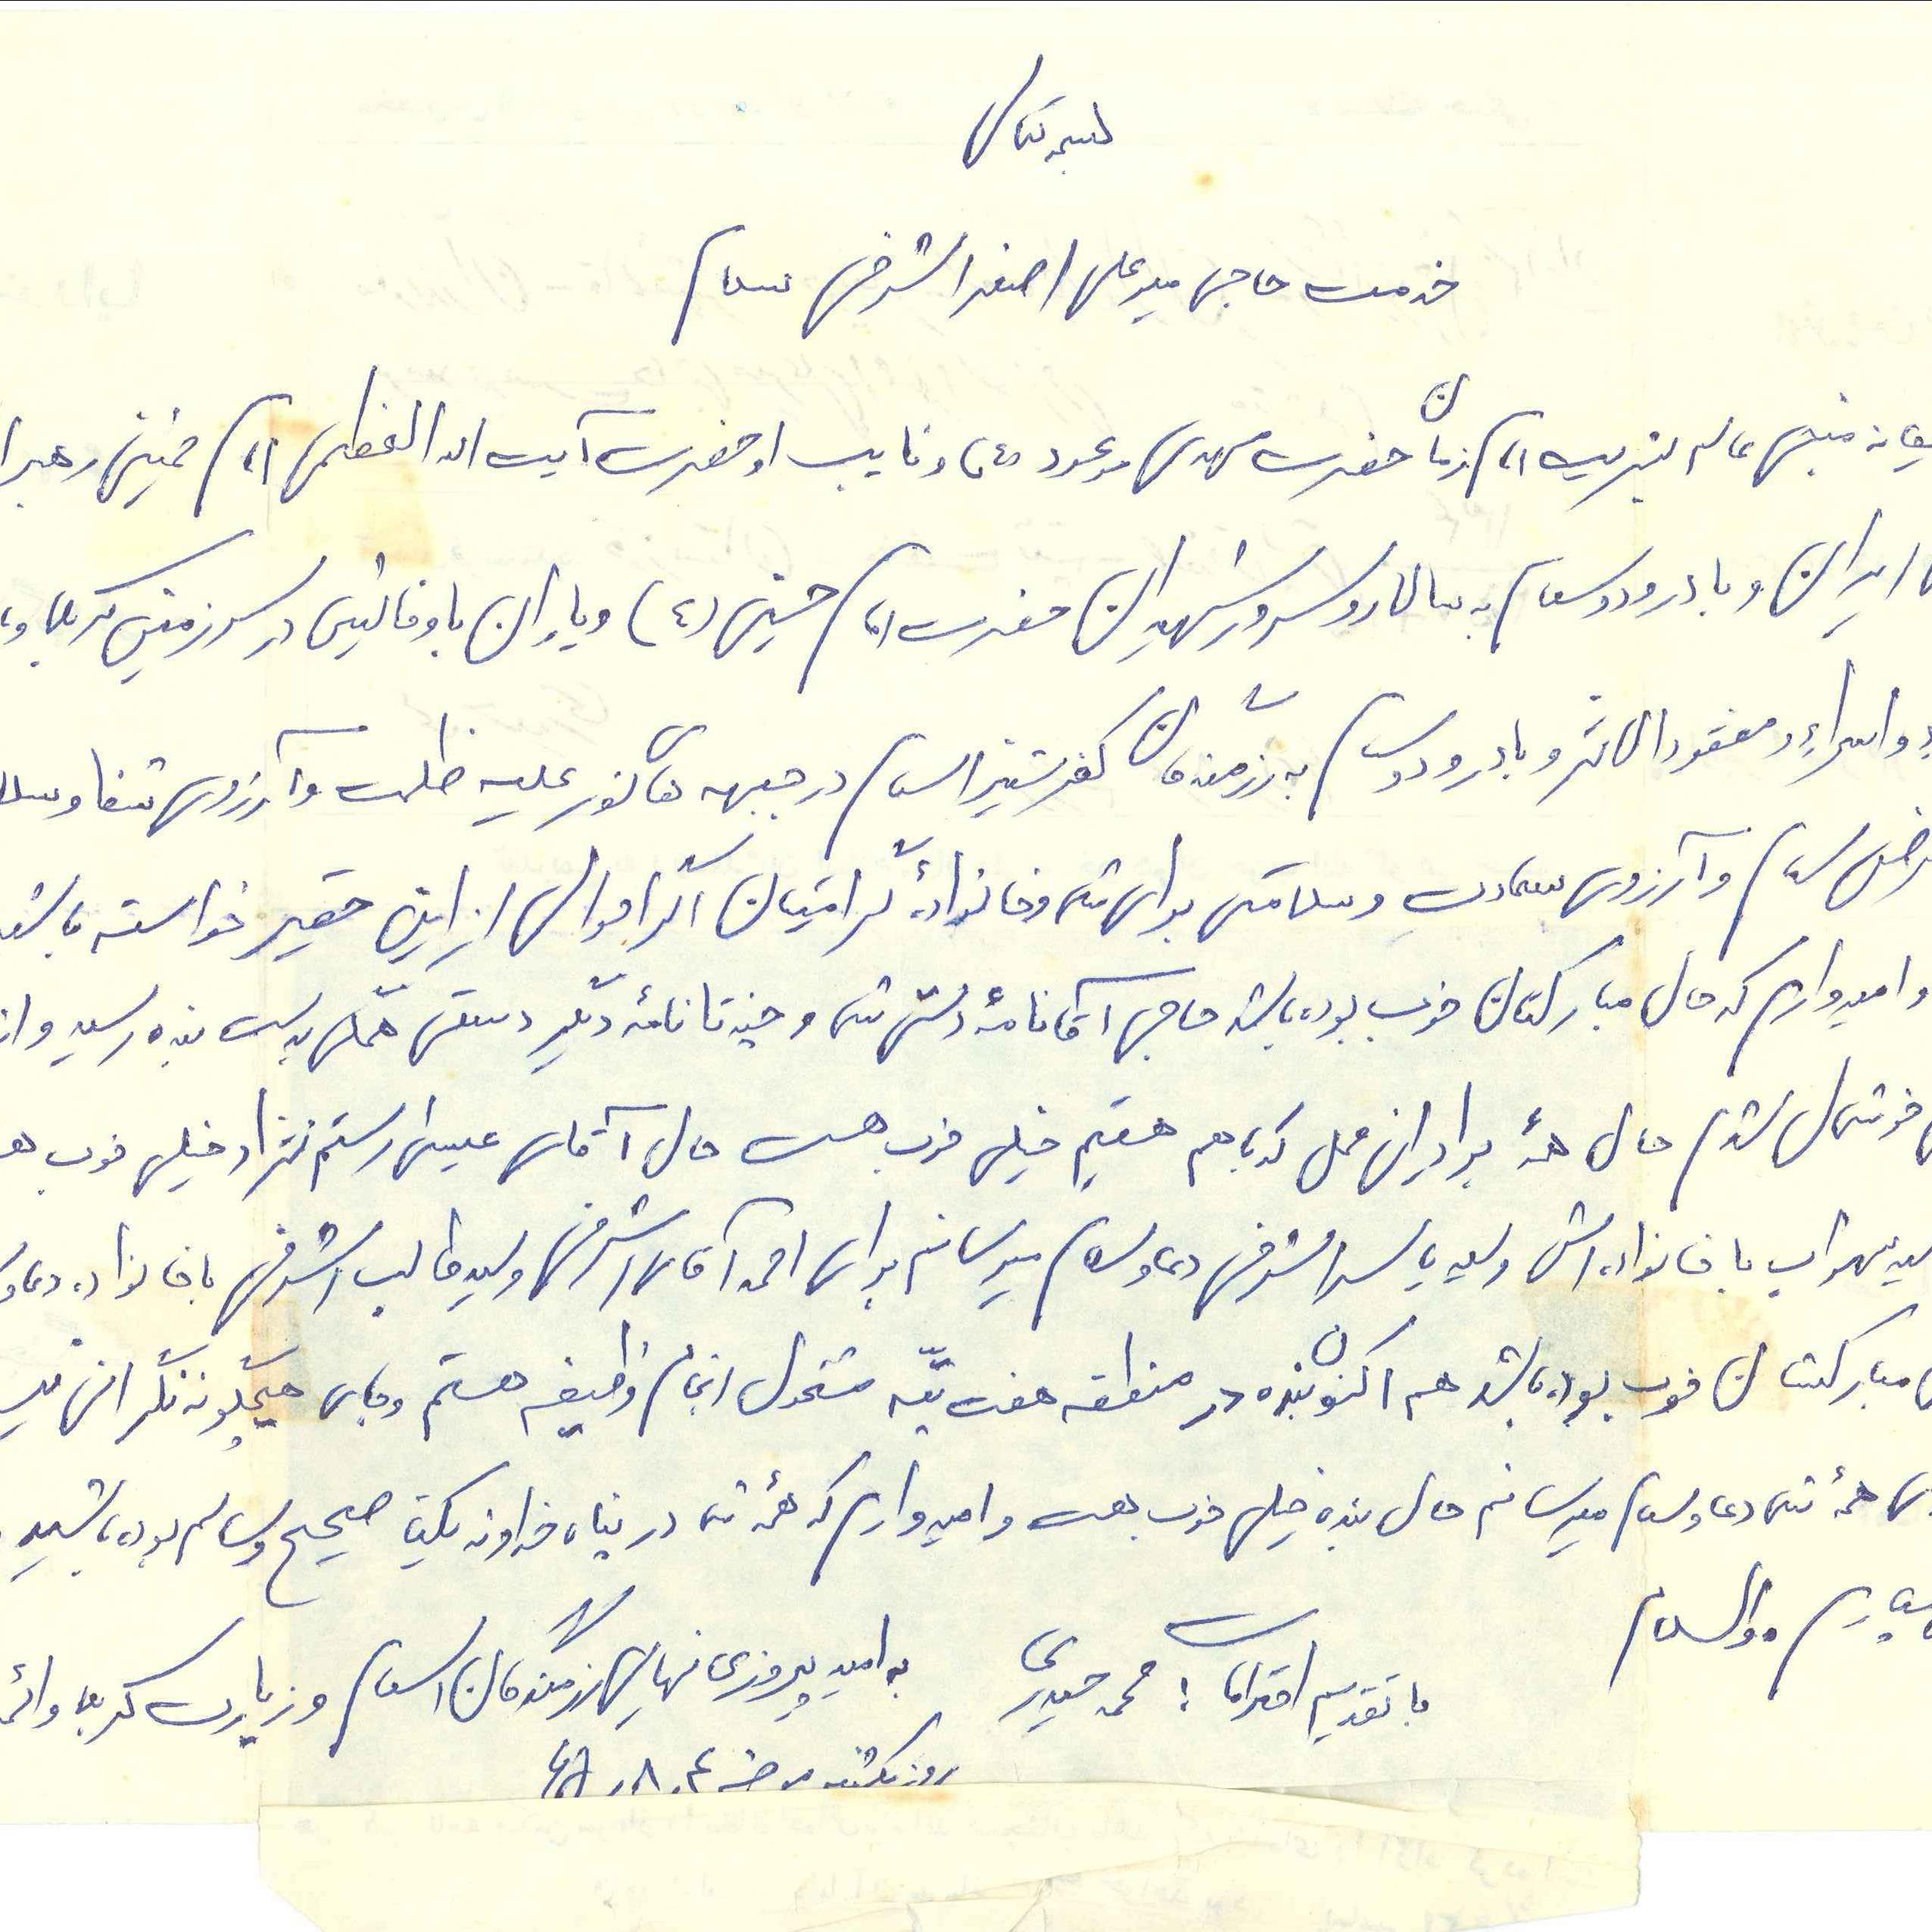 بسمه تعالی
خدمت حاجی میر علی اصغر اشرفی سلام
منجی عالم بشریت امام زمان حضرت مهدی موعود (عج) و نایب او حضرت آیت الله العظمی امام خمینی رهبر
ایران و با درود و سلام به سالار و سرور شهیدان حضرت امام حسین (ع) و یاران با وفائیش در سرزمین کربلا و
و اسراء و مفقود الاثر و با درود و سلام به رزمندگان کفرستیز اسلام در جبهه های نور علیه ظلمت و آرزوی شفا و
سلام و آرزوی سعادت و سلامتی برای شما و خانوادۀ گرامتیان اگر احوالی از این حقیر خواسته باشید
و امیدوارم که حال مبارکتان خوب بوده باشد حاجی آقا نامۀ شما و چند تا نامۀ دیگر همگی بدست بنده رسید و
خوشحال شدم حال همۀ برادران محل که با هم هستیم خیلی خوب هست حال آقای عیسی رستم نژاد خیلی خوب
سید سهراب با خانواده اش و سید یاسر اشرفی دعا و سلام میرسانم برای احمد آقای اشرفی و سید طالب اشرفی با خانواده دعا و
مبارکتان خوب بوده باشد هم اکنون بنده در منطقه هفت تپه مشغول انجام وظیفه هستم و جای هیچگونه نگرانی
همۀ شما دعا و سلام میرسانم حال بنده خیلی خوب هست و امیدوارم که همۀ شما در پناه خداوند یکتا صحیح و سالم بوده باشید
والسلام
با تقدیم احترامات : محمد حیدری
به امید پیروزی نهایی رزمندگان اسلام و زیارت کربلا و
روز یکشنبه مورخه